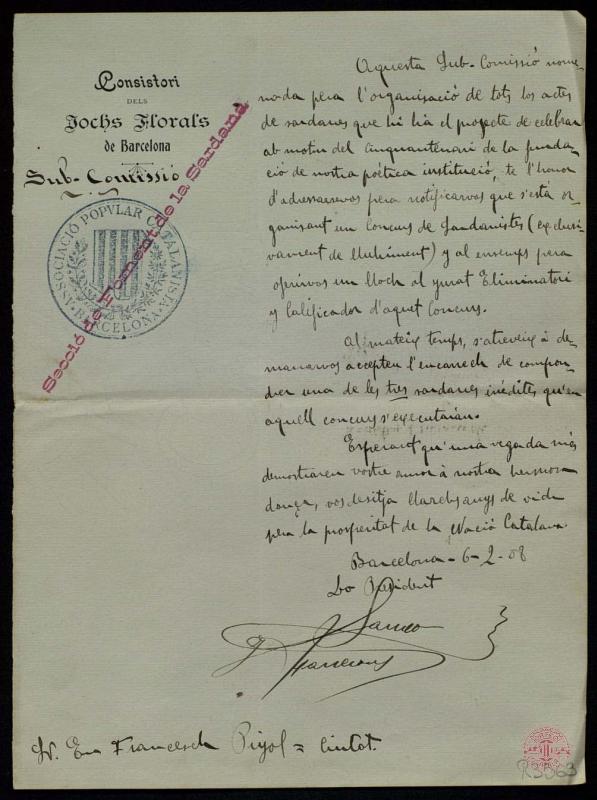 Consistori
DELS
Jochs Florals
de Barcelona
Sub-Comissió
ASSOCIACIÓ POPVLAR CATALANISTA
BARCELONA
Secció de Foment de la Sardana
Aquesta Sub-Comissió nome-
nada pera l'organisació de tots los actes
de sardanes que hi ha el projecte de celebrar
ab motiu del cinquantenari de la funda-
ció de nostra poètica institució, te l'honor
d'adressarvos pera notificarvos que s'està or-
ganisant un Concurs de Sardanistes (exclusi-
vament de lluhiment) y al ensemps pera
oferirvos un lloch al jurat Eliminatori
y Calificador d'aquet Concurs.
Al mateix temps, s'atreveix à de-
manarvos accepteu l'encarrech de compon-
drer una de les tres sardanes inédites qu'en
aquell concurs s'executarán.
Esperant qu'una vegada més
demostrareu vostre amor à nostra hermosa
dança, vos desitja llarchs anys de vida
pera la prosperitat de la Nació Catalana.
Barcelona - 6-2-08
Lo President
Sr. En Francesch Pujol = Ciutat.
R3563